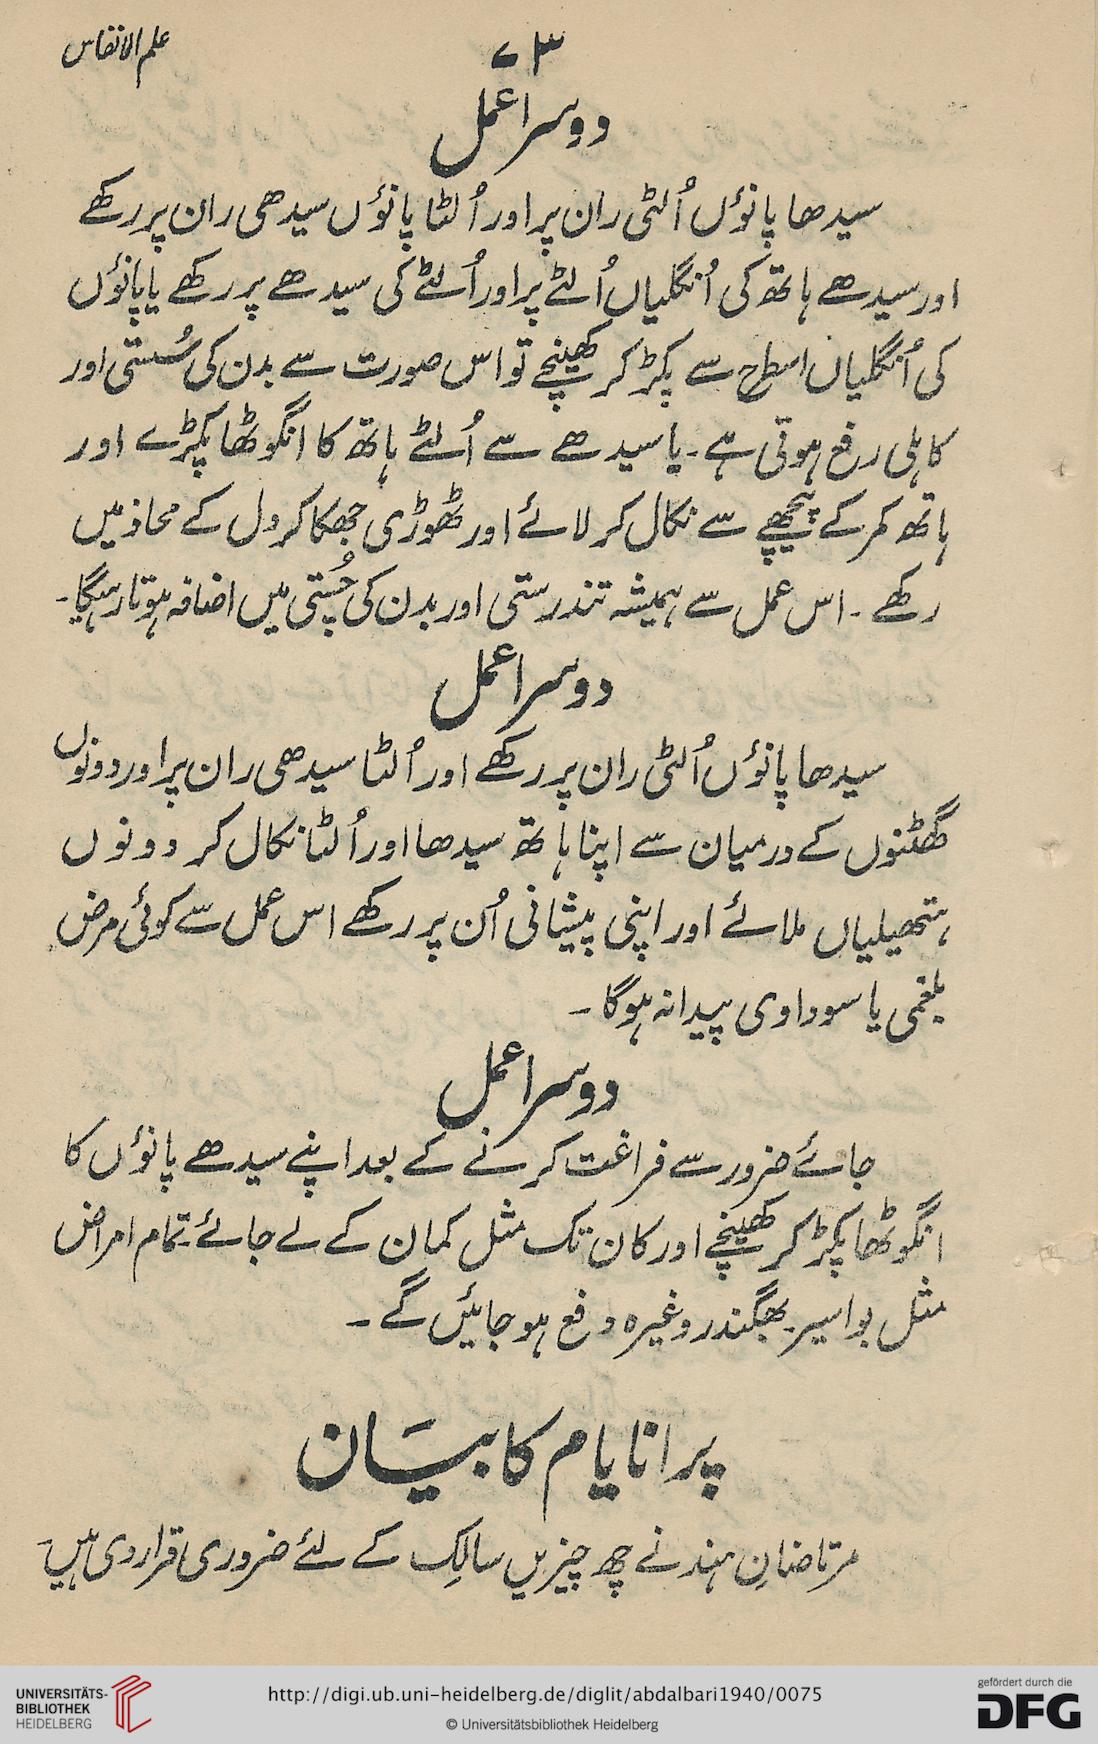 علم الانفاس
۷۳
دوسرا عمل
سیدھا پانوٗں اُلٹی ران پر اور اُلٹا پانوٗں سیدھی ران پر رکھے
اور سیدھے ہاتھ کی اُنگلیاں اُلٹے پر اور اُلٹے کی سیدھے پر رکھے یا پانوٗں
کی اُنگلیاں اسطرح سے پکڑ کر کھینچے تو اس صورت سے بدن کی سُستی اور
کاہلی رفع ہوتی ہے۔ یا سیدھے سے اُلٹے ہاتھ کا انگوٹھا پکڑے اور
ہاتھ کمر کے پیچھے سے نکال کر لائے اور ٹھوڑی جھکا کر دل کے محاذ میں
رکھے۔ اس عمل سے ہمیشہ تندرستی اور بدن کی چُستی میں اضافہ ہوتا رہیگا۔
دوسرا عمل
سیدھا پانوٗں اُلٹی ران پر رکھے اور اُلٹا سیدھی ران پر اور دونوں
گھٹنوں کے درمیان سے اپنا ہاتھ سیدھا اور اُلٹا نکال کر دونوں
ہتھیلیاں ملائے اور اپنی پیشانی اُن پر رکھے اس عمل سے کوئی مرض
بلغمی یا سوداوی پیدا نہ ہوگا۔
دوسرا عمل
جائے ضرور سے فراغت کرنے کے بعد اپنے سیدھے پانوٗں کا
انگوٹھا پکڑ کر کھینچے اور کان تک مثل کمان کے لے جائے۔ تمام امراض
مثل بواسیر۔ بھگندر وغیرہ دفع ہو جائیں گے۔
پرانا یام کا بیَان
مرتاضانِ ہند نے چھ چیزیں سالِک کے لئے ضروری قرار دی ہیں۔
UNIVERSITÄTS-
BIBLIOTHEK
HEIDELBERG
http://digi.ub.uni-heidelberg.de/diglit/abdalbari1940/0075
© Universitätsbibliothek Heidelberg
gefördert durch die
DFG